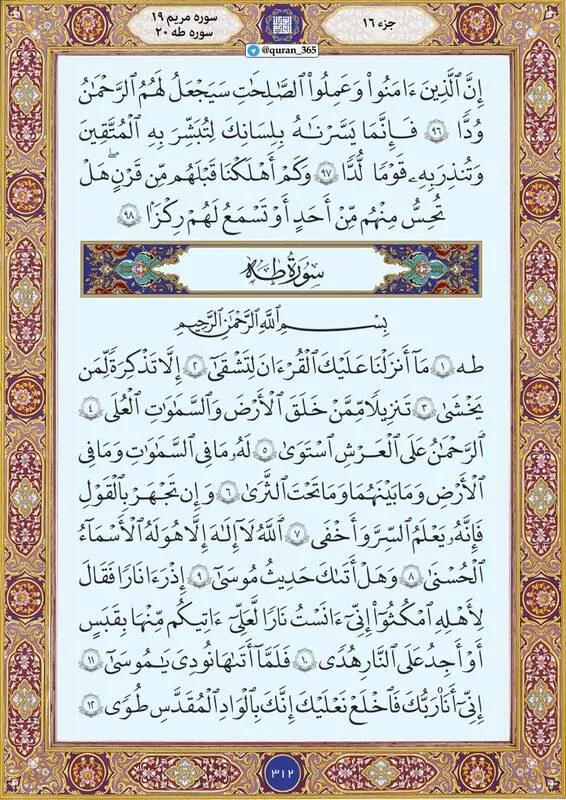 جزء ۱۶
سوره مریم ۱۹
سوره طه ۲۰
@quran_365
إِنَّ ٱلَّذِينَ ءَامَنُوا۟ وَعَمِلُوا۟ ٱلصَّـٰلِحَـٰتِ سَيَجْعَلُ لَهُمُ ٱلرَّحْمَـٰنُ
وُدًّا ۹۶ فَإِنَّمَا يَسَّرْنَـٰهُ بِلِسَانِكَ لِتُبَشِّرَ بِهِ ٱلْمُتَّقِينَ
وَتُنذِرَ بِهِۦ قَوْمًا لُّدًّا ۹۷ وَكَمْ أَهْلَكْنَا قَبْلَهُم مِّن قَرْنٍ هَلْ
تُحِسُّ مِنْهُم مِّنْ أَحَدٍ أَوْ تَسْمَعُ لَهُمْ رِكْزًۢا ۹۸
سُورَةُ طه
بِسْمِ ٱللَّهِ ٱلرَّحْمَـٰنِ ٱلرَّحِيمِ
طه ۱ مَآ أَنزَلْنَا عَلَيْكَ ٱلْقُرْءَانَ لِتَشْقَىٰٓ ۲ إِلَّا تَذْكِرَةً لِّمَن
يَخْشَىٰ ۳ تَنزِيلًا مِّمَّنْ خَلَقَ ٱلْأَرْضَ وَٱلسَّمَـٰوَٰتِ ٱلْعُلَى ۴
ٱلرَّحْمَـٰنُ عَلَى ٱلْعَرْشِ ٱسْتَوَىٰ ۵ لَهُۥ مَا فِى ٱلسَّمَـٰوَٰتِ وَمَا فِى
ٱلْأَرْضِ وَمَا بَيْنَهُمَا وَمَا تَحْتَ ٱلثَّرَىٰ ۶ وَإِن تَجْهَرْ بِٱلْقَوْلِ
فَإِنَّهُۥ يَعْلَمُ ٱلسِّرَّ وَأَخْفَى ۷ ٱللَّهُ لَآ إِلَـٰهَ إِلَّا هُوَ لَهُ ٱلْأَسْمَآءُ
ٱلْحُسْنَىٰ ۸ وَهَلْ أَتَىٰكَ حَدِيثُ مُوسَىٰٓ ۹ إِذْ رَءَا نَارًا فَقَالَ
لِأَهْلِهِ ٱمْكُثُوٓا۟ إِنِّىٓ ءَانَسْتُ نَارًا لَّعَلِّىٓ ءَاتِيكُم مِّنْهَا بِقَبَسٍ
أَوْ أَجِدُ عَلَى ٱلنَّارِ هُدًى ۱۰ فَلَمَّآ أَتَىٰهَا نُودِىَ يَـٰمُوسَىٰٓ ۱۱
إِنِّىٓ أَنَا۠ رَبُّكَ فَٱخْلَعْ نَعْلَيْكَ إِنَّكَ بِٱلْوَادِ ٱلْمُقَدَّسِ طُوًى ۱۲
۳۱۲